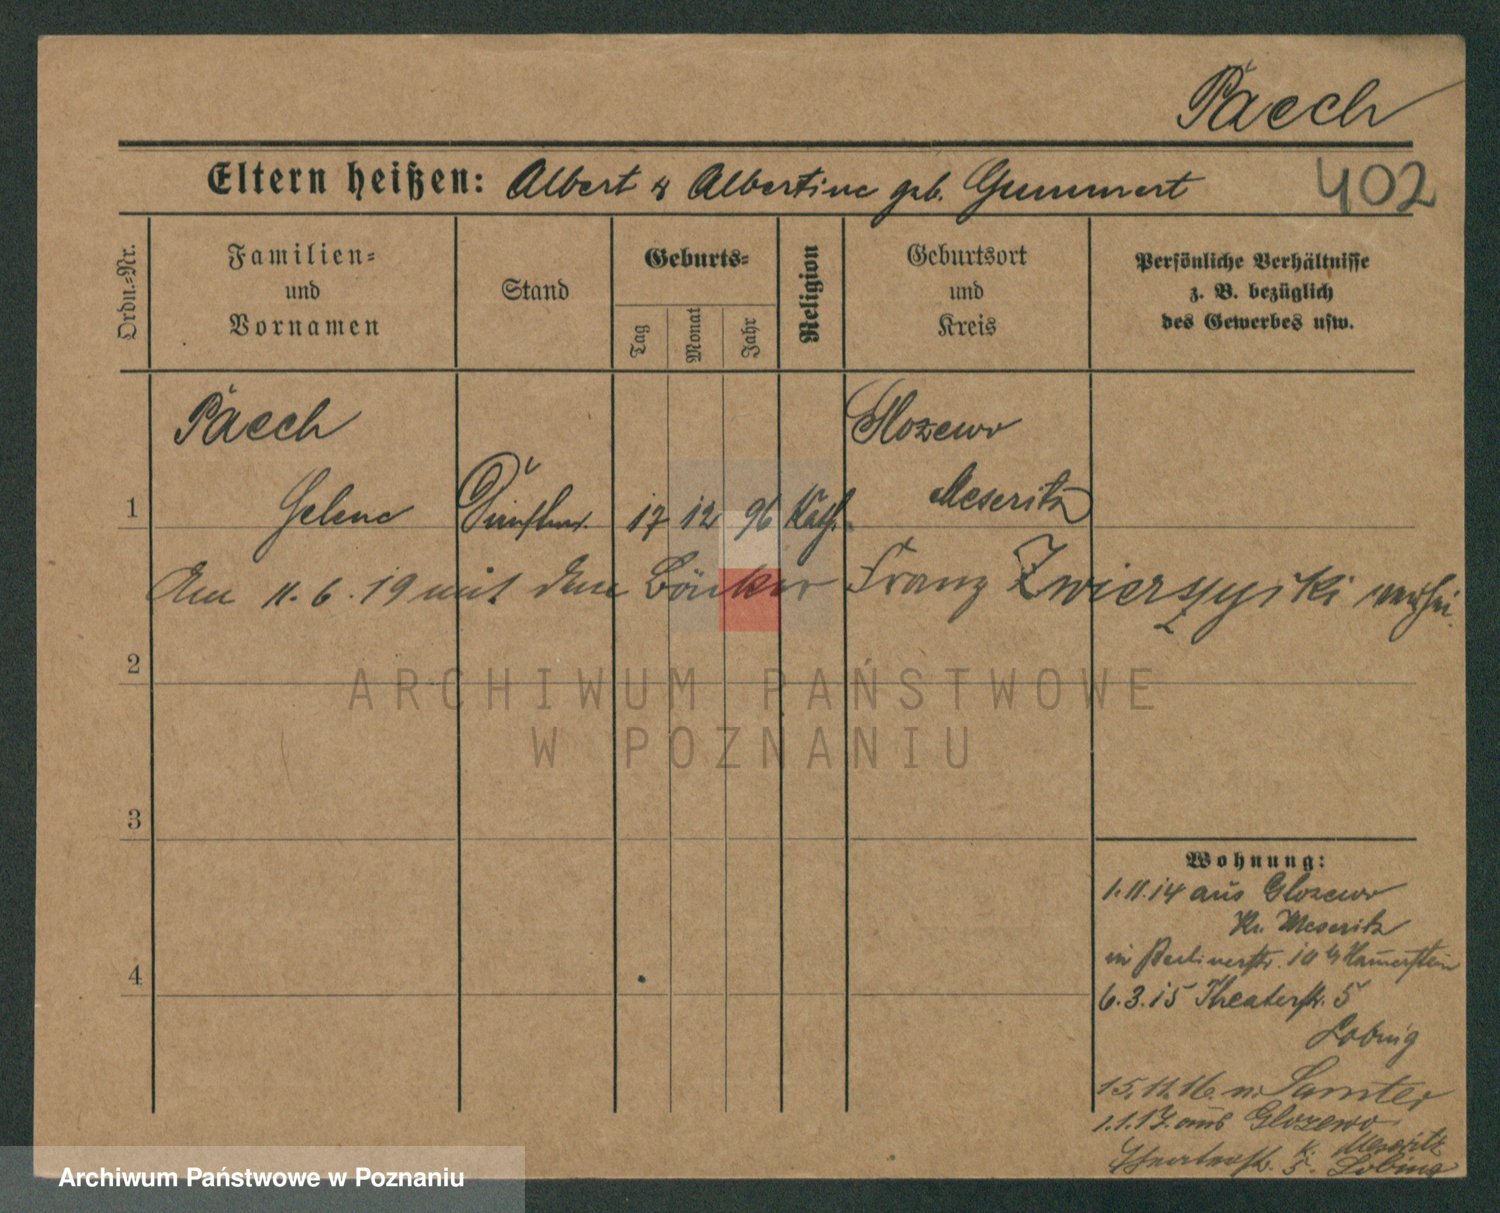 Paech
Eltern heißen: Albert & Albertine geb. Gummert
402
Ordn.=Nr.
Familien=
und
Vornamen
Stand
Geburts=
Tag
Monat
Jahr
Religion
Geburtsort
und
Kreis
Persönliche Verhältnisse
z. B. bezüglich
des Gewerbes usw.
Paech
Glozewo
1
Helene
17 12 96 Kath.
Meseritz
Am 11.6.19 mit dem Franz
2
ARCHIWUM PAŃSTWOWE
W POZNANIU
3
Wohnung:
1.11.14 aus Glozewo
Kr. Meseritz
in Berlinerstr. 10
4
6.3.15 Theaterstr. 5
15.11.16 n. Samter
1.1.17 aus Glozewo
K. Meseritz
5.
Archiwum Państwowe w Poznaniu